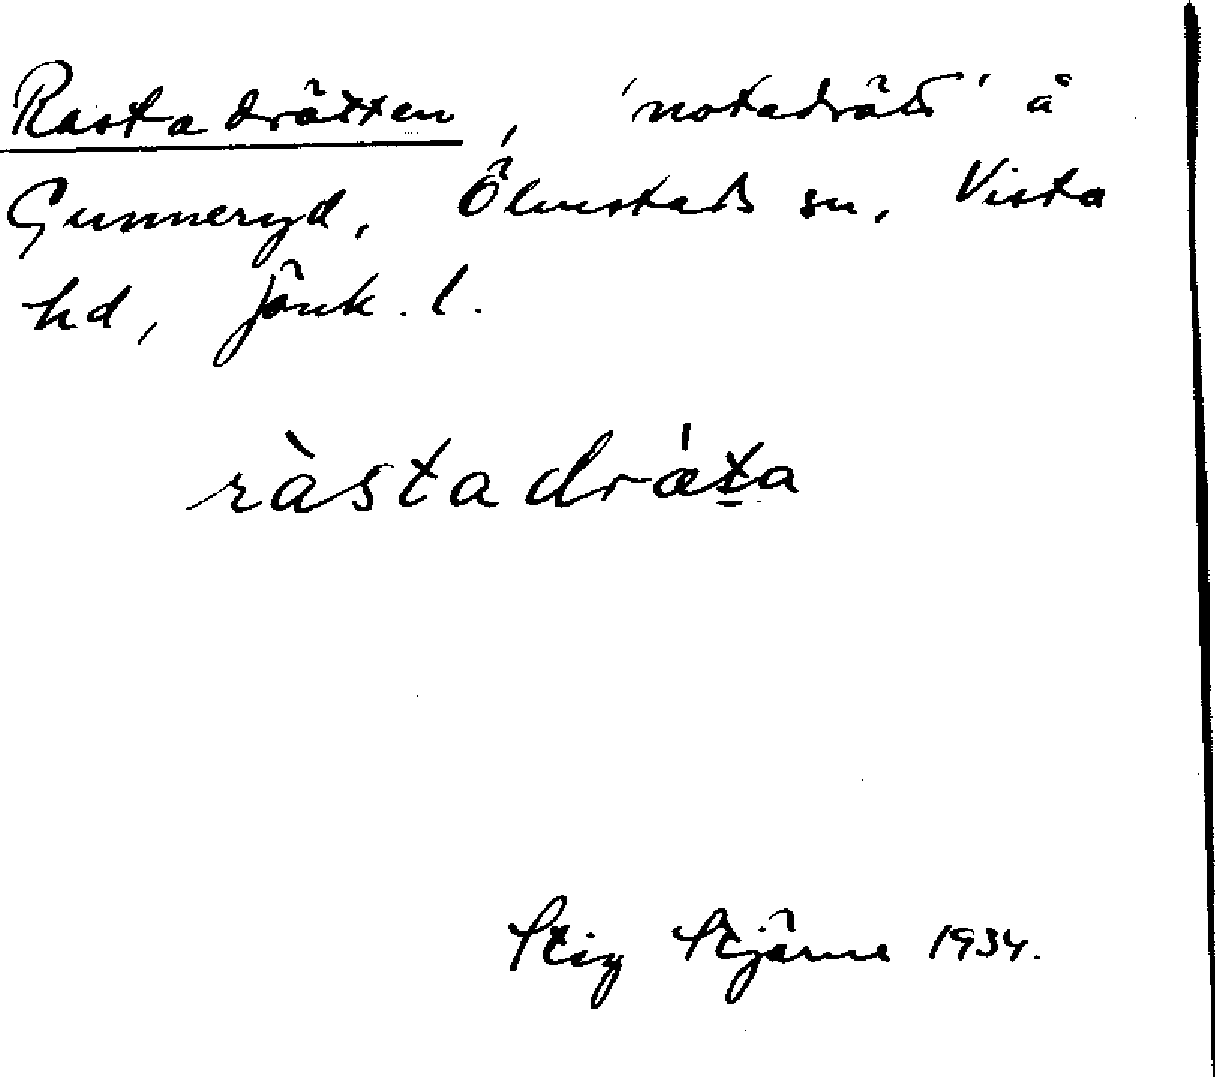 Rastadrätten, 'notadrätt' å
Gunneryd, Ölmstads sn, Vista
hd, Jönk. l.
ràstadrǽt̠a
Stig Stjärne 1934.